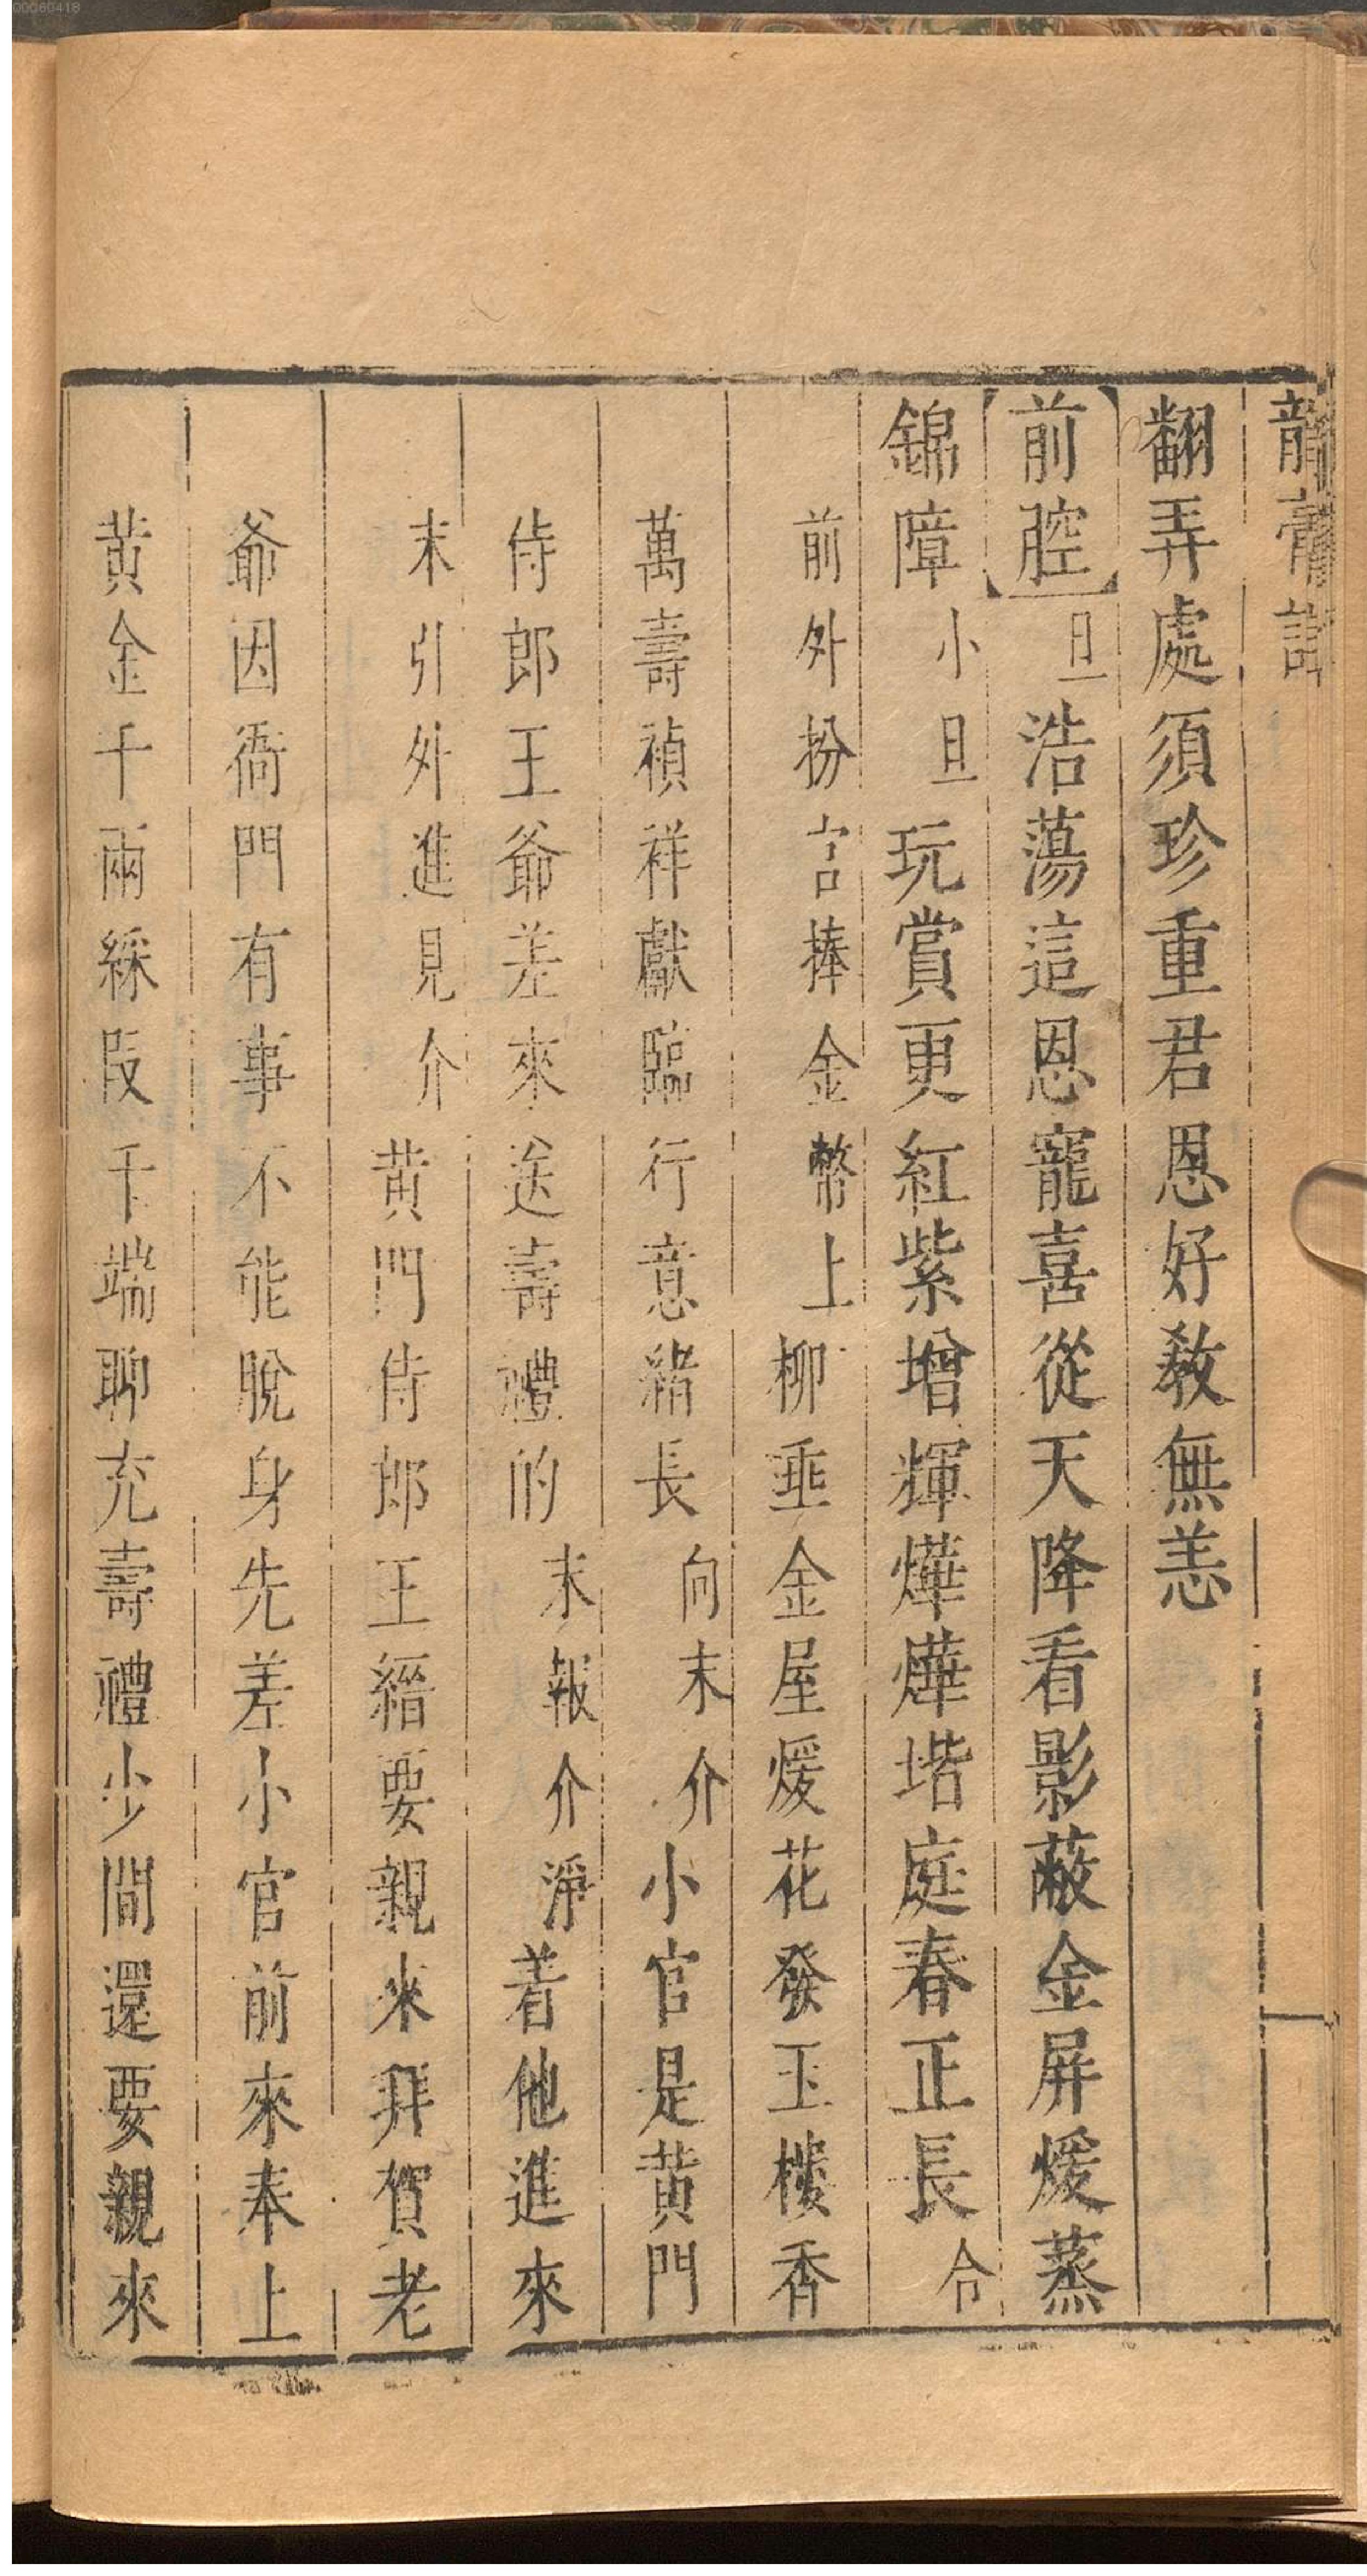 00060418
龍膏記
翻弄處須珍重君恩好教無恙
【前腔】旦浩蕩這恩寵喜從天降看影蔽金屏煖蒸
錦障小旦玩賞更紅紫增輝燁燁堦庭春正長合
前外扮官捧金幣上柳垂金屋煖花發玉樓香
萬壽禎祥獻臨行意緒長向末介小官是黄門
侍郎王爺差來送壽禮的末報介淨着他進來
末引外進見介黄門侍郎王縉要親來拜賀老
爺因衙門有事不能脫身先差小官前來奉上
黄金千兩綵段千端聊充壽禮少間還要親來